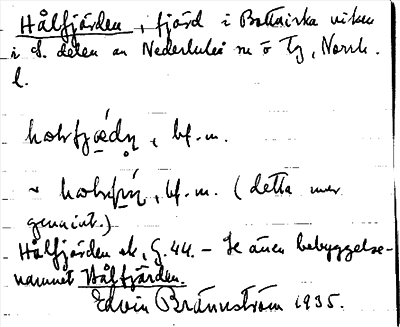 Hålfjärden, fjärd i Bottniska viken
i S. delen av Nederluleå sn o Tg, Norrb.
l.
bf. m.
~ bf. m. (detta mer
genuint.)
Hålfjärden ek, G. 44. – Se även bebyggelse-
namnet Hålfjärden.
Edvin Brännström 1935.